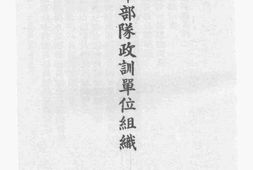 部隊政訓單位組織